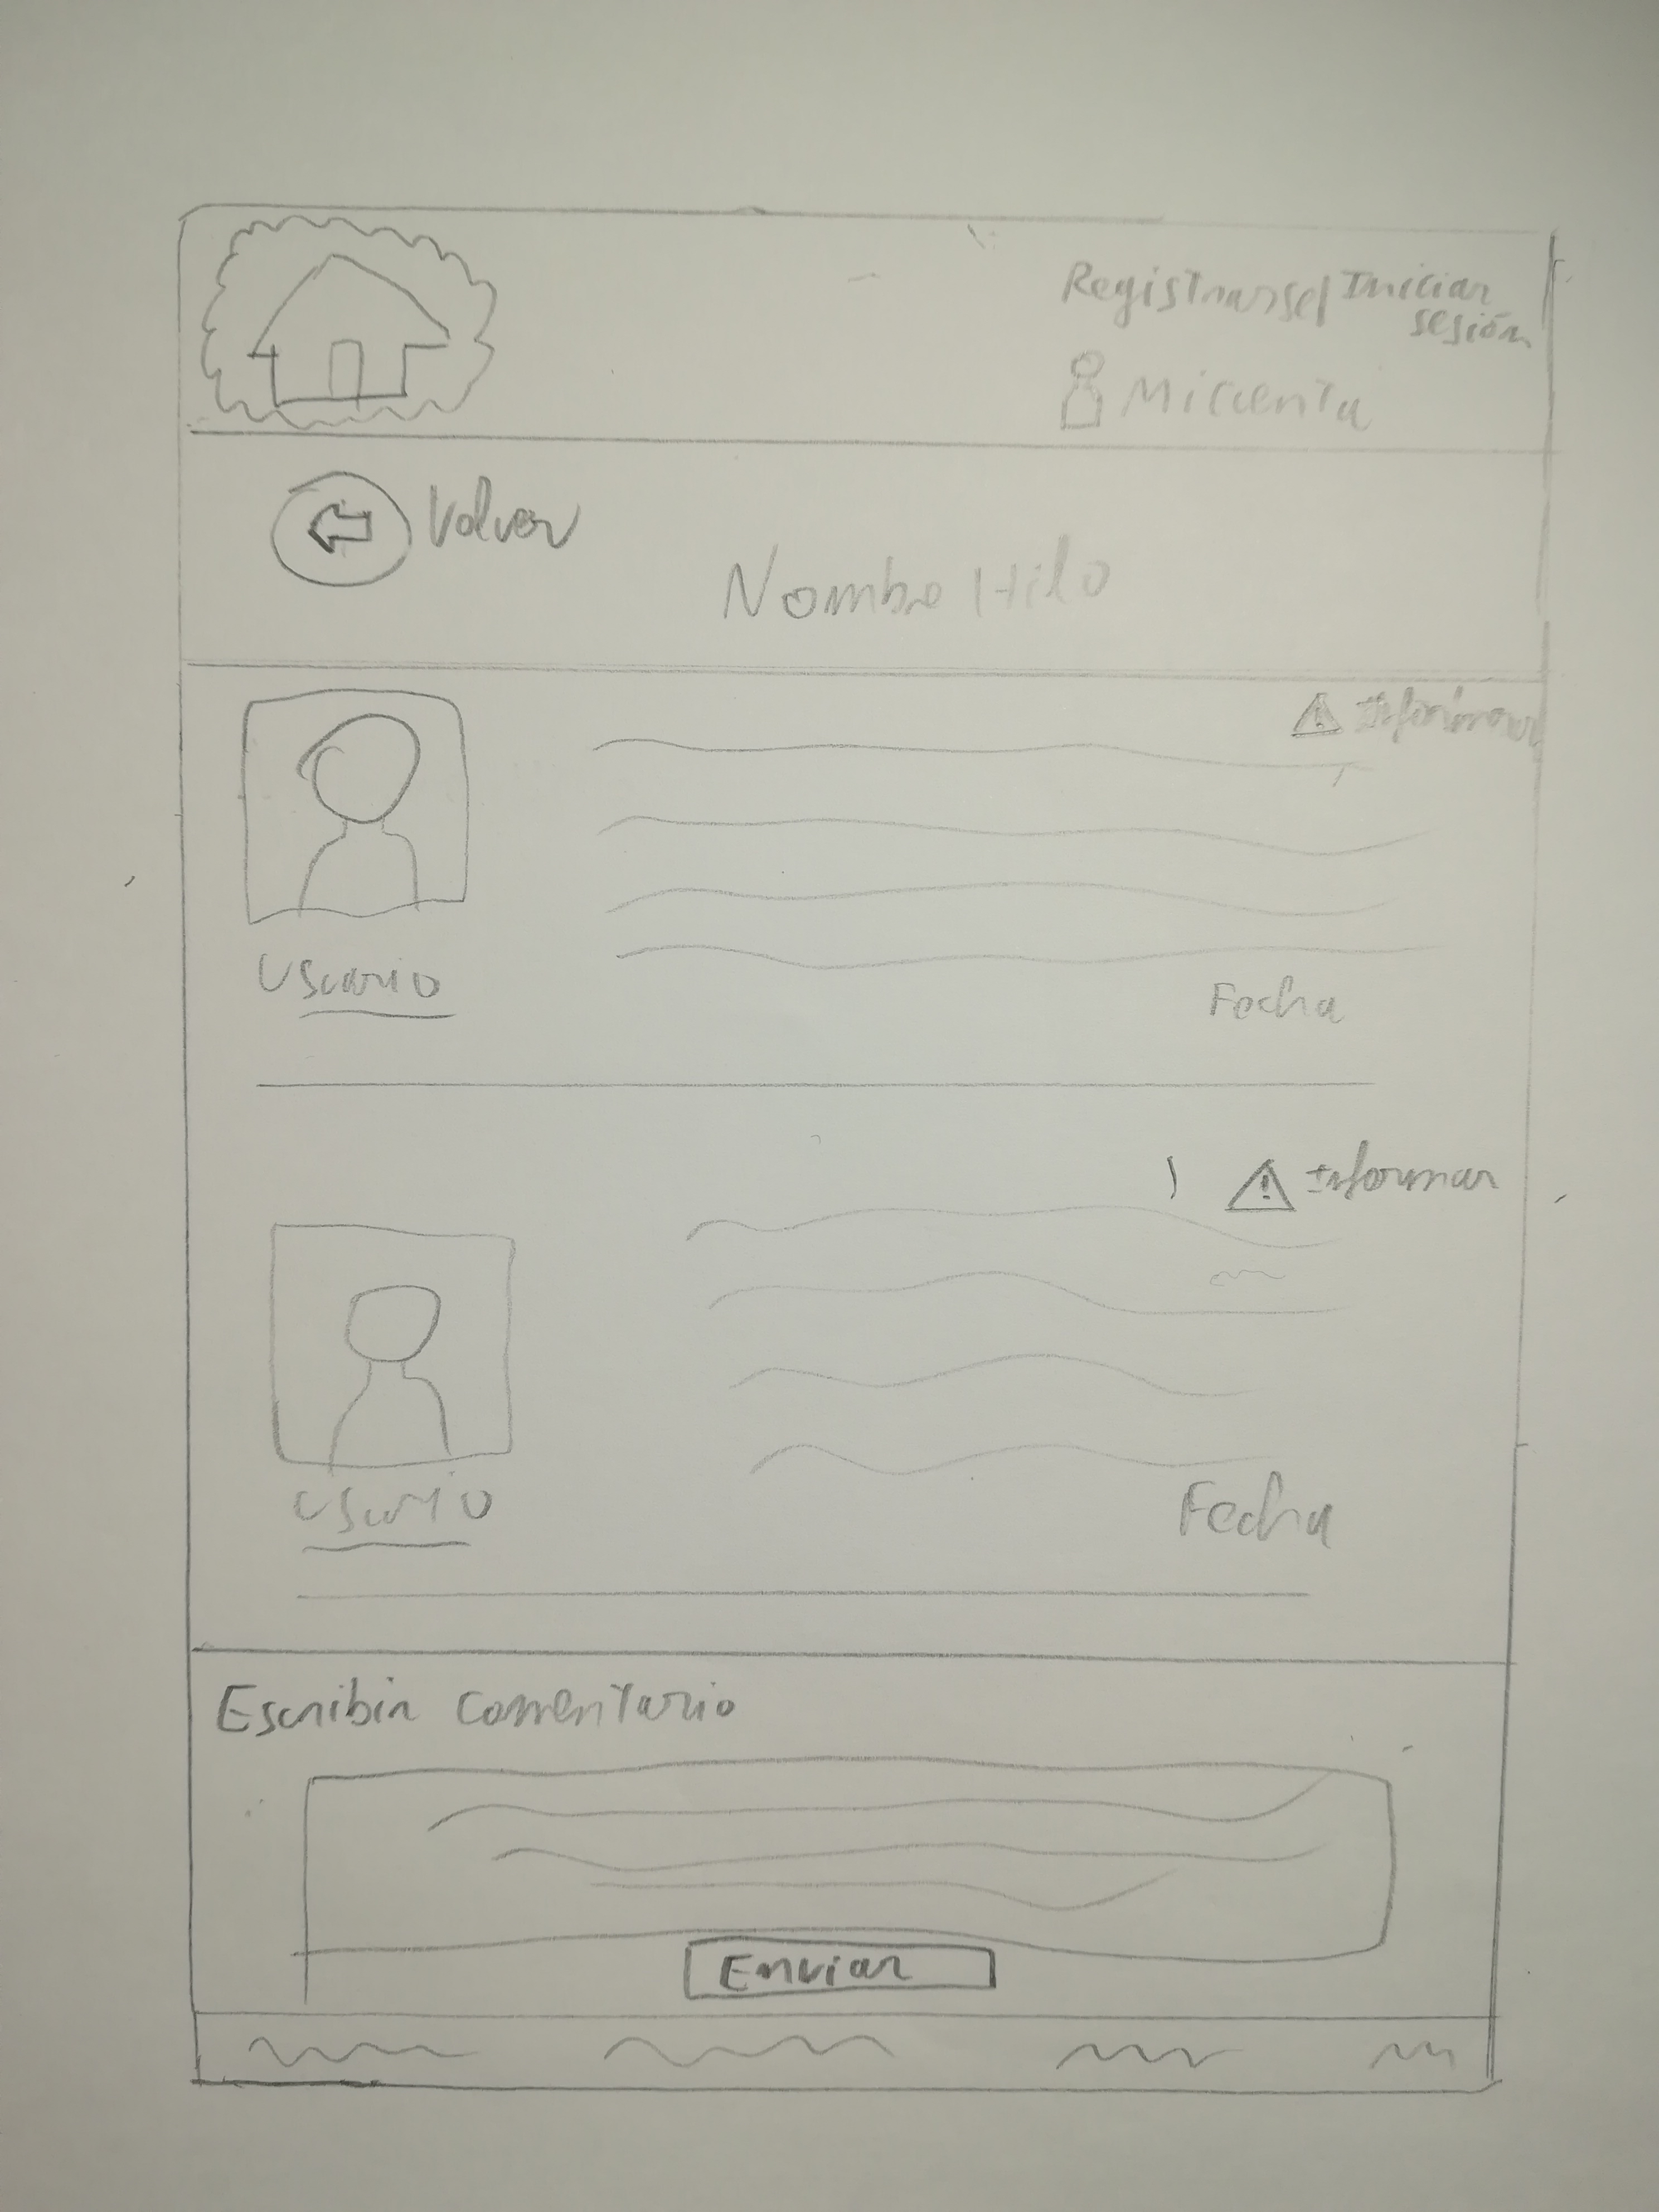 Registrarse| Iniciar
sesión
Mi cuenta
Volver
Nombre Hilo
Informar
Usuario
Fecha
Informar
Usuario
Fecha
Escribir comentario
Enviar